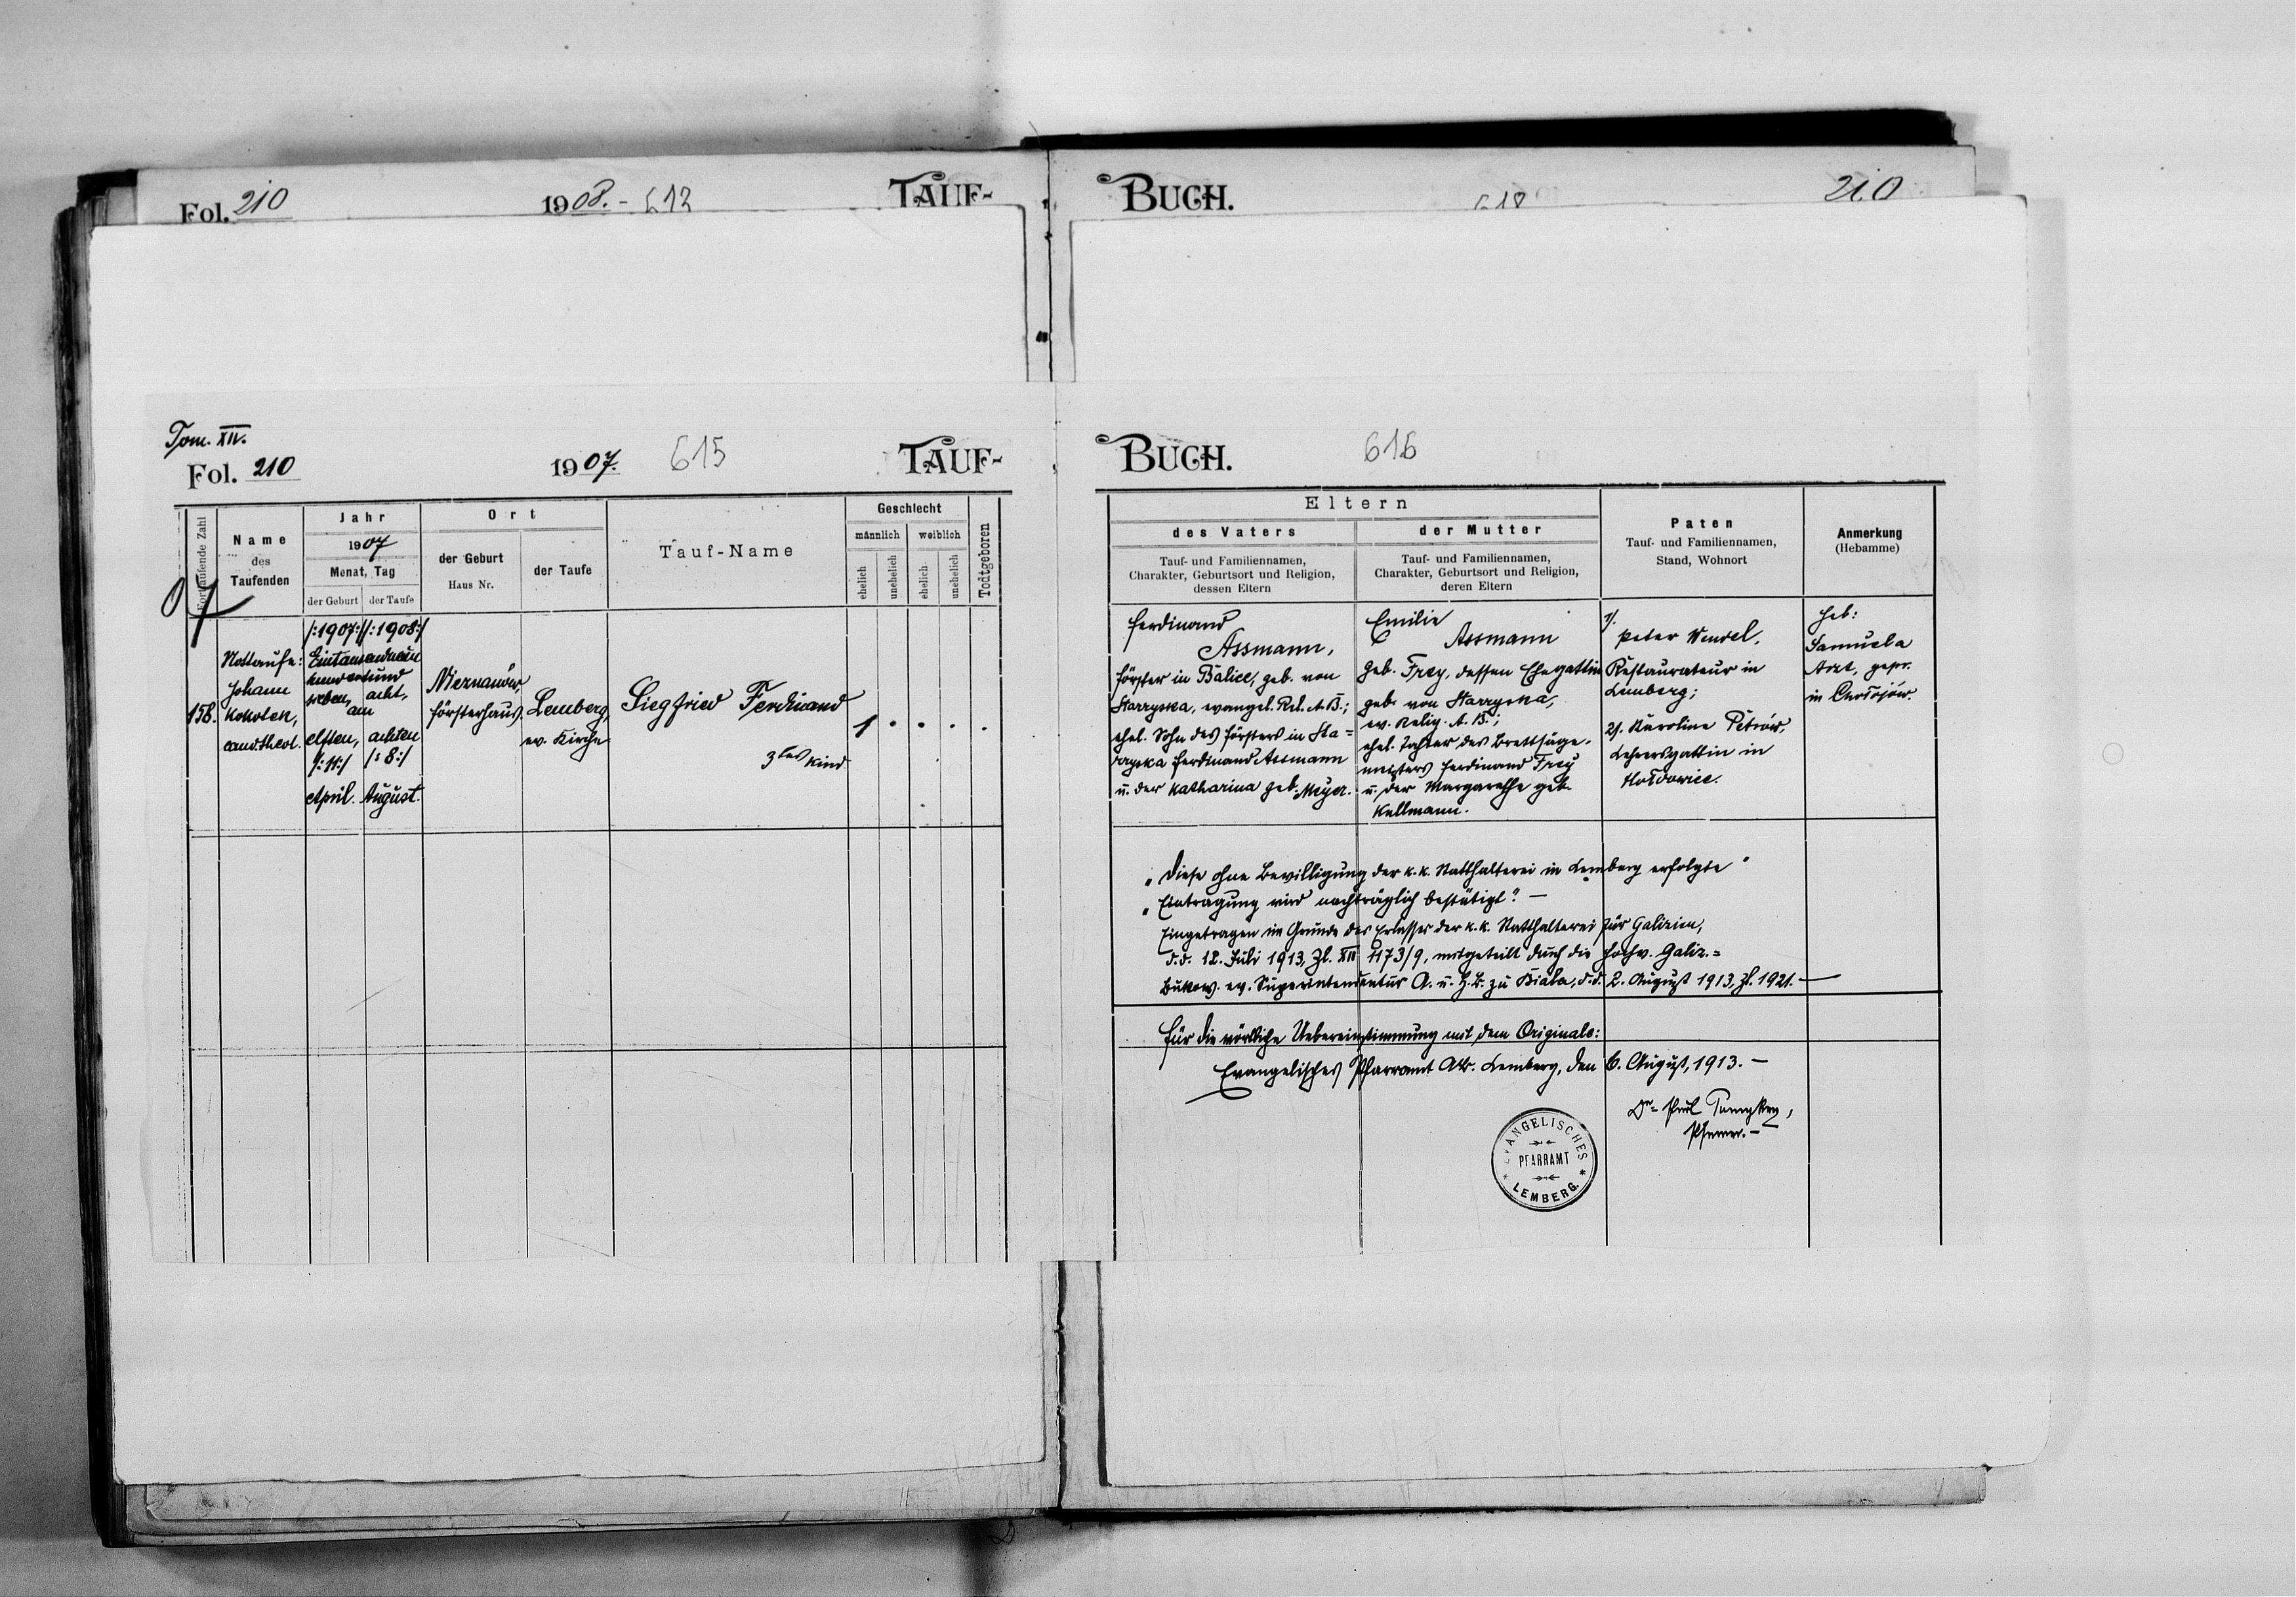 Fol. 210
1908. - 612
TAUF-
BUCH.
618
210
Tom. XII.
Fol. 210
1907.
615
TAUF-
BUCH.
616
Fortlaufende Zahl
Name
des
Taufenden
Jahr
1907
Monat, Tag
der Geburt
der Taufe
Ort
der Geburt
Haus Nr.
der Taufe
Tauf-Name
Geschlecht
männlich
weiblich
ehelich
unehelich
ehelich
unehelich
Todtgeboren
07
158.
Nottaufe:
Johann
Kokoten,
cand. theol.
/:1907:/
/:1908:/
Eintausendneun
hundertund
sieben,
acht,
am
elften,
achten
/:11:/
/:8:/
April.
August.
Försterhaus,
Lemberg,
ev. Kirche
Siegfried Ferdinand
3tes Kind
1
Eltern
des Vaters
Tauf- und Familiennamen,
Charakter, Geburtsort und Religion,
dessen Eltern
der Mutter
Tauf- und Familiennamen,
Charakter, Geburtsort und Religion,
deren Eltern
Paten
Tauf- und Familiennamen,
Stand, Wohnort
Anmerkung
(Hebamme)
Ferdinand
Assmann,
Förster in Balice, geb. von
Starzyska, evangel. Rel. A.B.;
ehel. Sohn des Försters in Sta=
rzyska Ferdinand Assmann
u. der Katharina geb. Meyer.
Emilie
Assmann
geb. Frey, dessen Ehegattin
geb. von Starzyska,
ev. Relig. A.B.;
ehel. Tochter des Brettsäge-
meisters Ferdinand Frey
u. der Margarethe geb.
Kullmann.
1/.
Peter Wendel,
Restaurateur in
Lemberg;
2/. Karoline Petrów,
Lehrersgattin in
Hołdowice.
Heb:
Samuela
Arzt, gepr.
in Chodojów.
"Diese ohne Bewilligung der k.k. Statthalterei in Lemberg erfolgte"
"Eintragung wird nachträglich bestätigt". —
Eingetragen im Grunde des Erlasses der k.k. Statthalterei für Galizien,
d.d. 12. Juli 1913, Zl. XII 4173/9, mitgeteilt durch die hochw. Galiz.=
Bukow. ev. Superintendentur A. u. H.B. zu Biała, d.d. 2. August 1913, Zl. 1921. —
Für die wörtliche Uebereinstimmung mit dem Originale:
Evangelisches Pfarramt A.B. Lemberg, den 6. August, 1913. —
Dr. Paul
Pfarrer. —
EVANGELISCHES
PFARRAMT
* LEMBERG. *